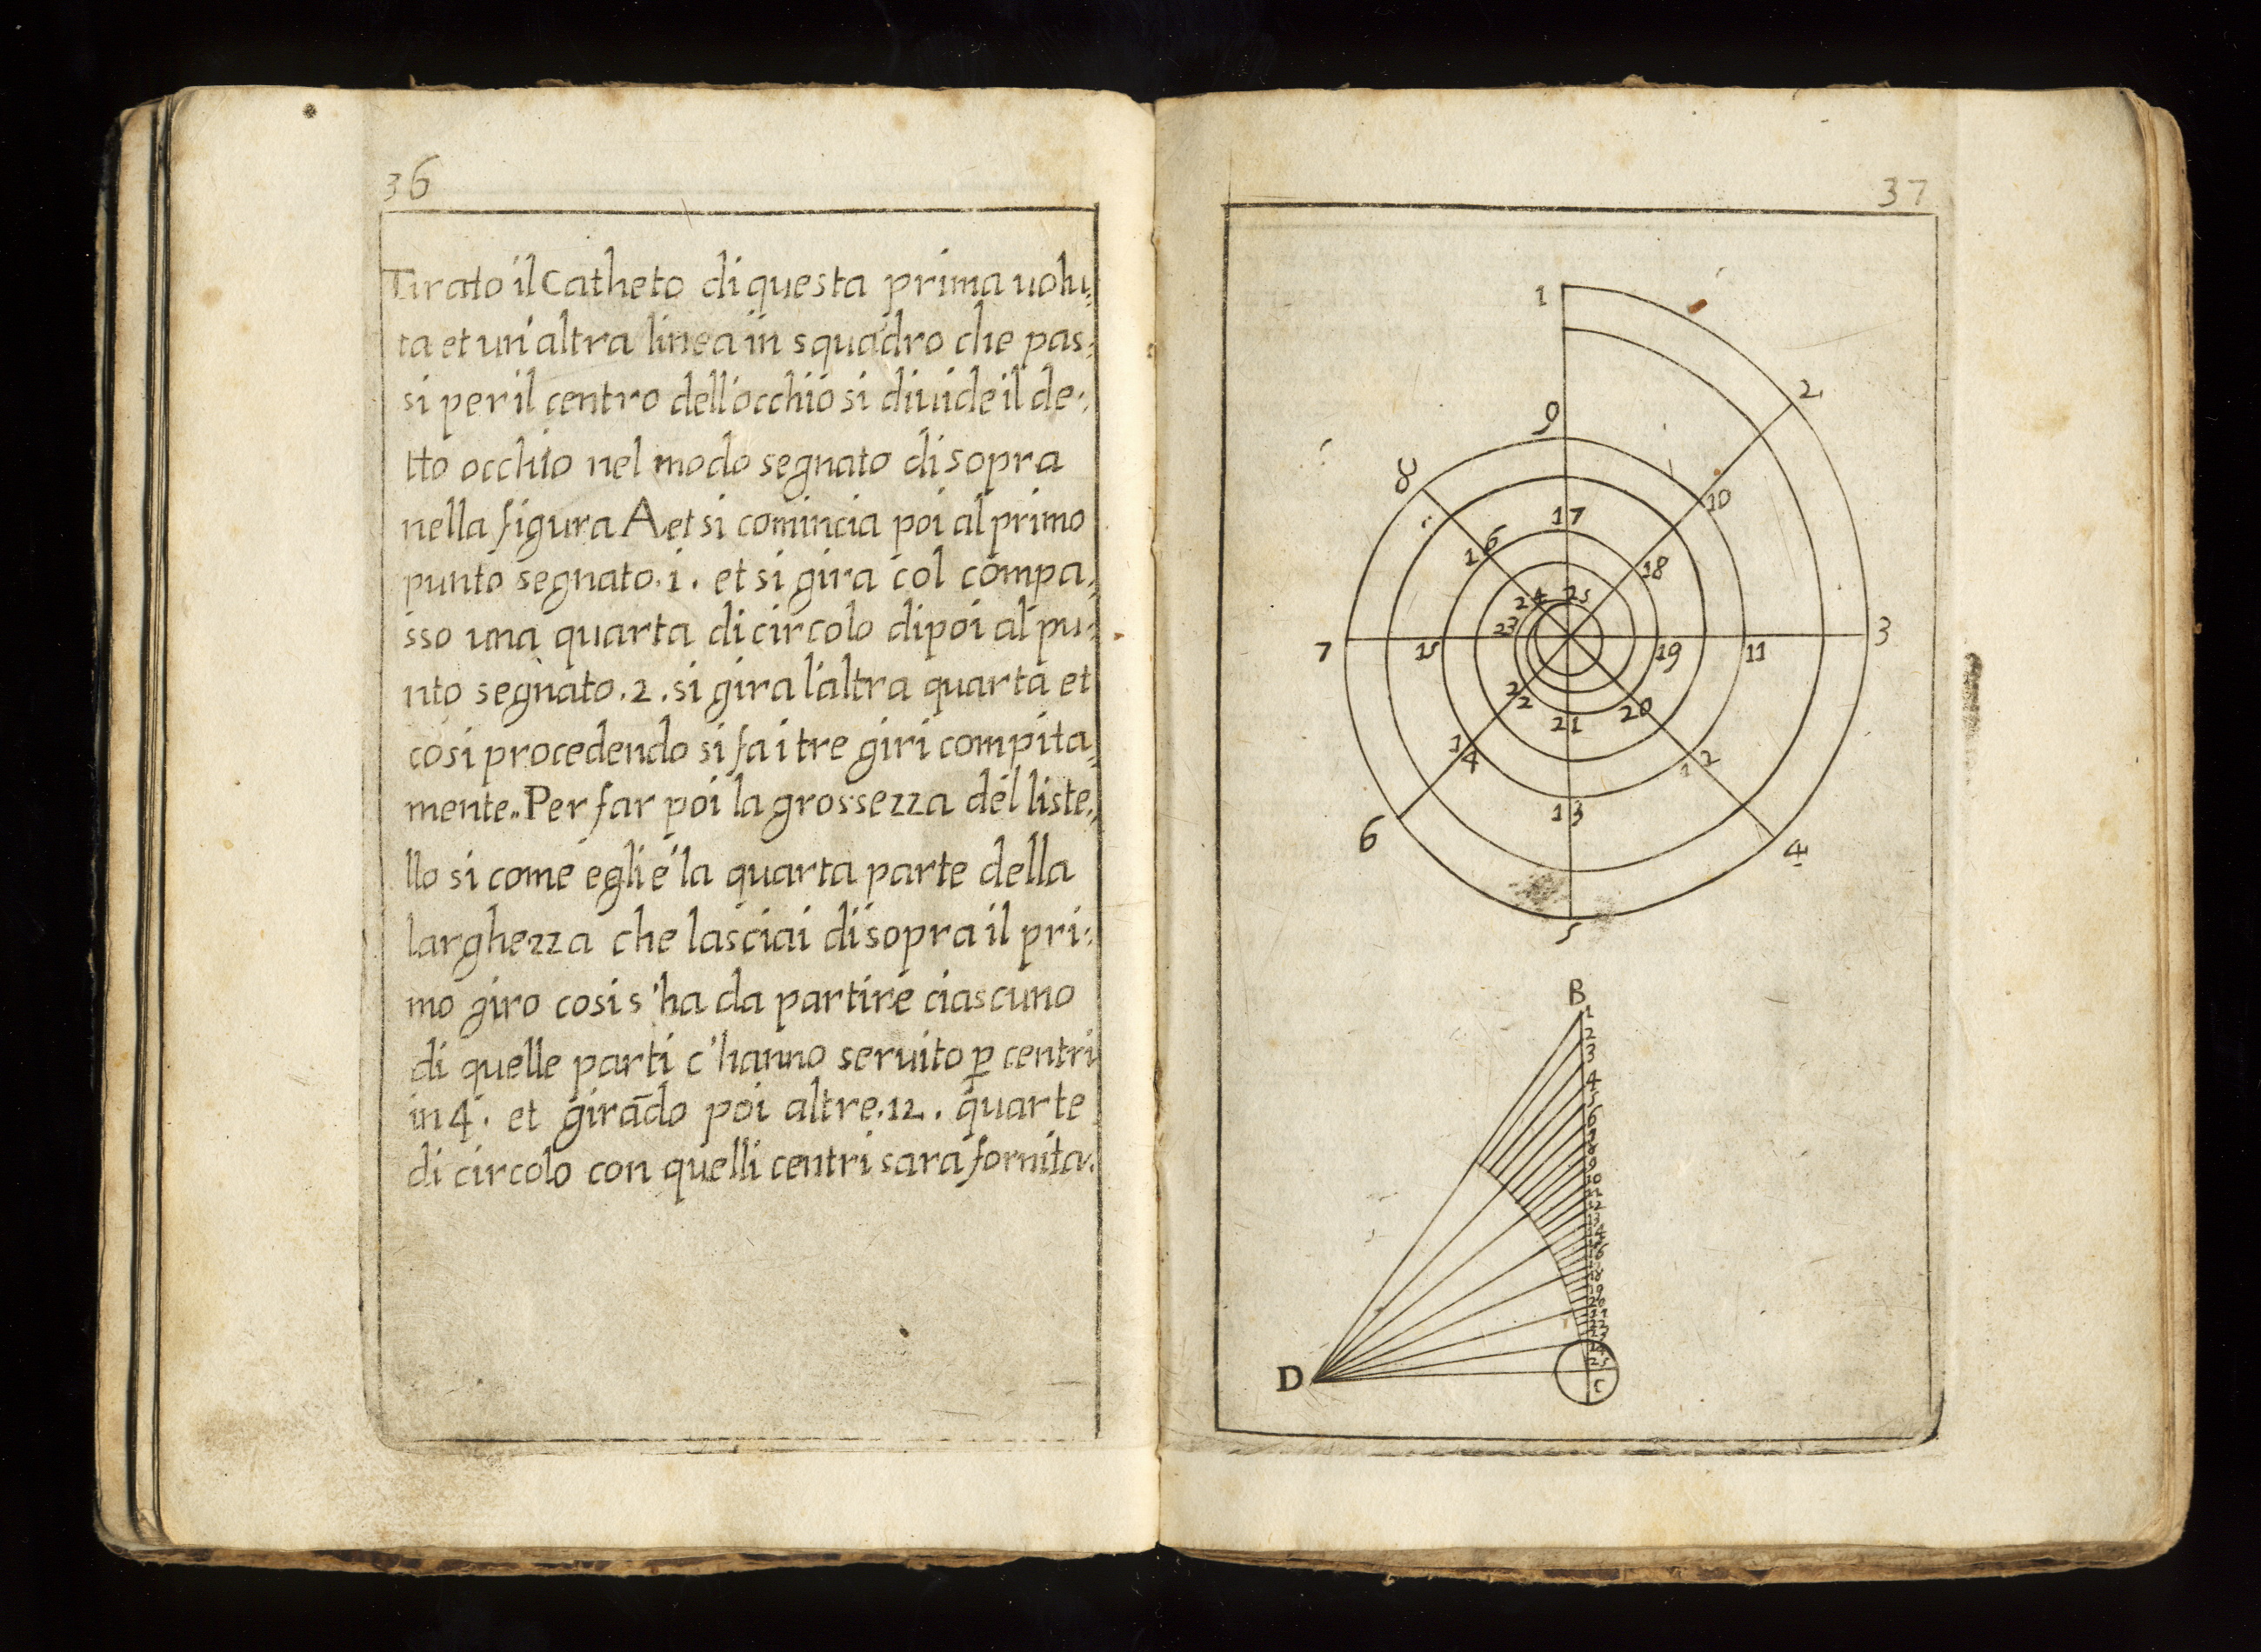 36
Tirato il Catheto di questa prima uolu:
ta et un'altra linea in squadro che pas:
si per il centro dell'occhio si diuide il de:
tto occhio nel modo segnato di sopra
nella figura A et si comincia poi al primo
punto segnato .1. et si gira col compa,
sso una quarta di circolo dipoi al pu:
nto segnato .2. si gira l'altra quarta et
cosi procedendo si fa i tre giri compita,
mente. Per far poi la grossezza del liste,
llo si come egli é la quarta parte della
larghezza che lasciai di sopra il pri:
mo giro cosi s'ha da partire ciascuno
di quelle parti c'hanno seruito ꝑ centri
in 4. et girādo poi altre .12. quarte
di circolo con quelli centri sará fornita.
37
1
2
9
8
10
17
16
18
24 25
23
3
7
15
19
11
22
20
21
14
12
13
6
4
5
B
1
2
3
4
5
6
7
8
9
10
11
12
13
14
15
16
17
18
19
20
21
22
23
24
25
D
C